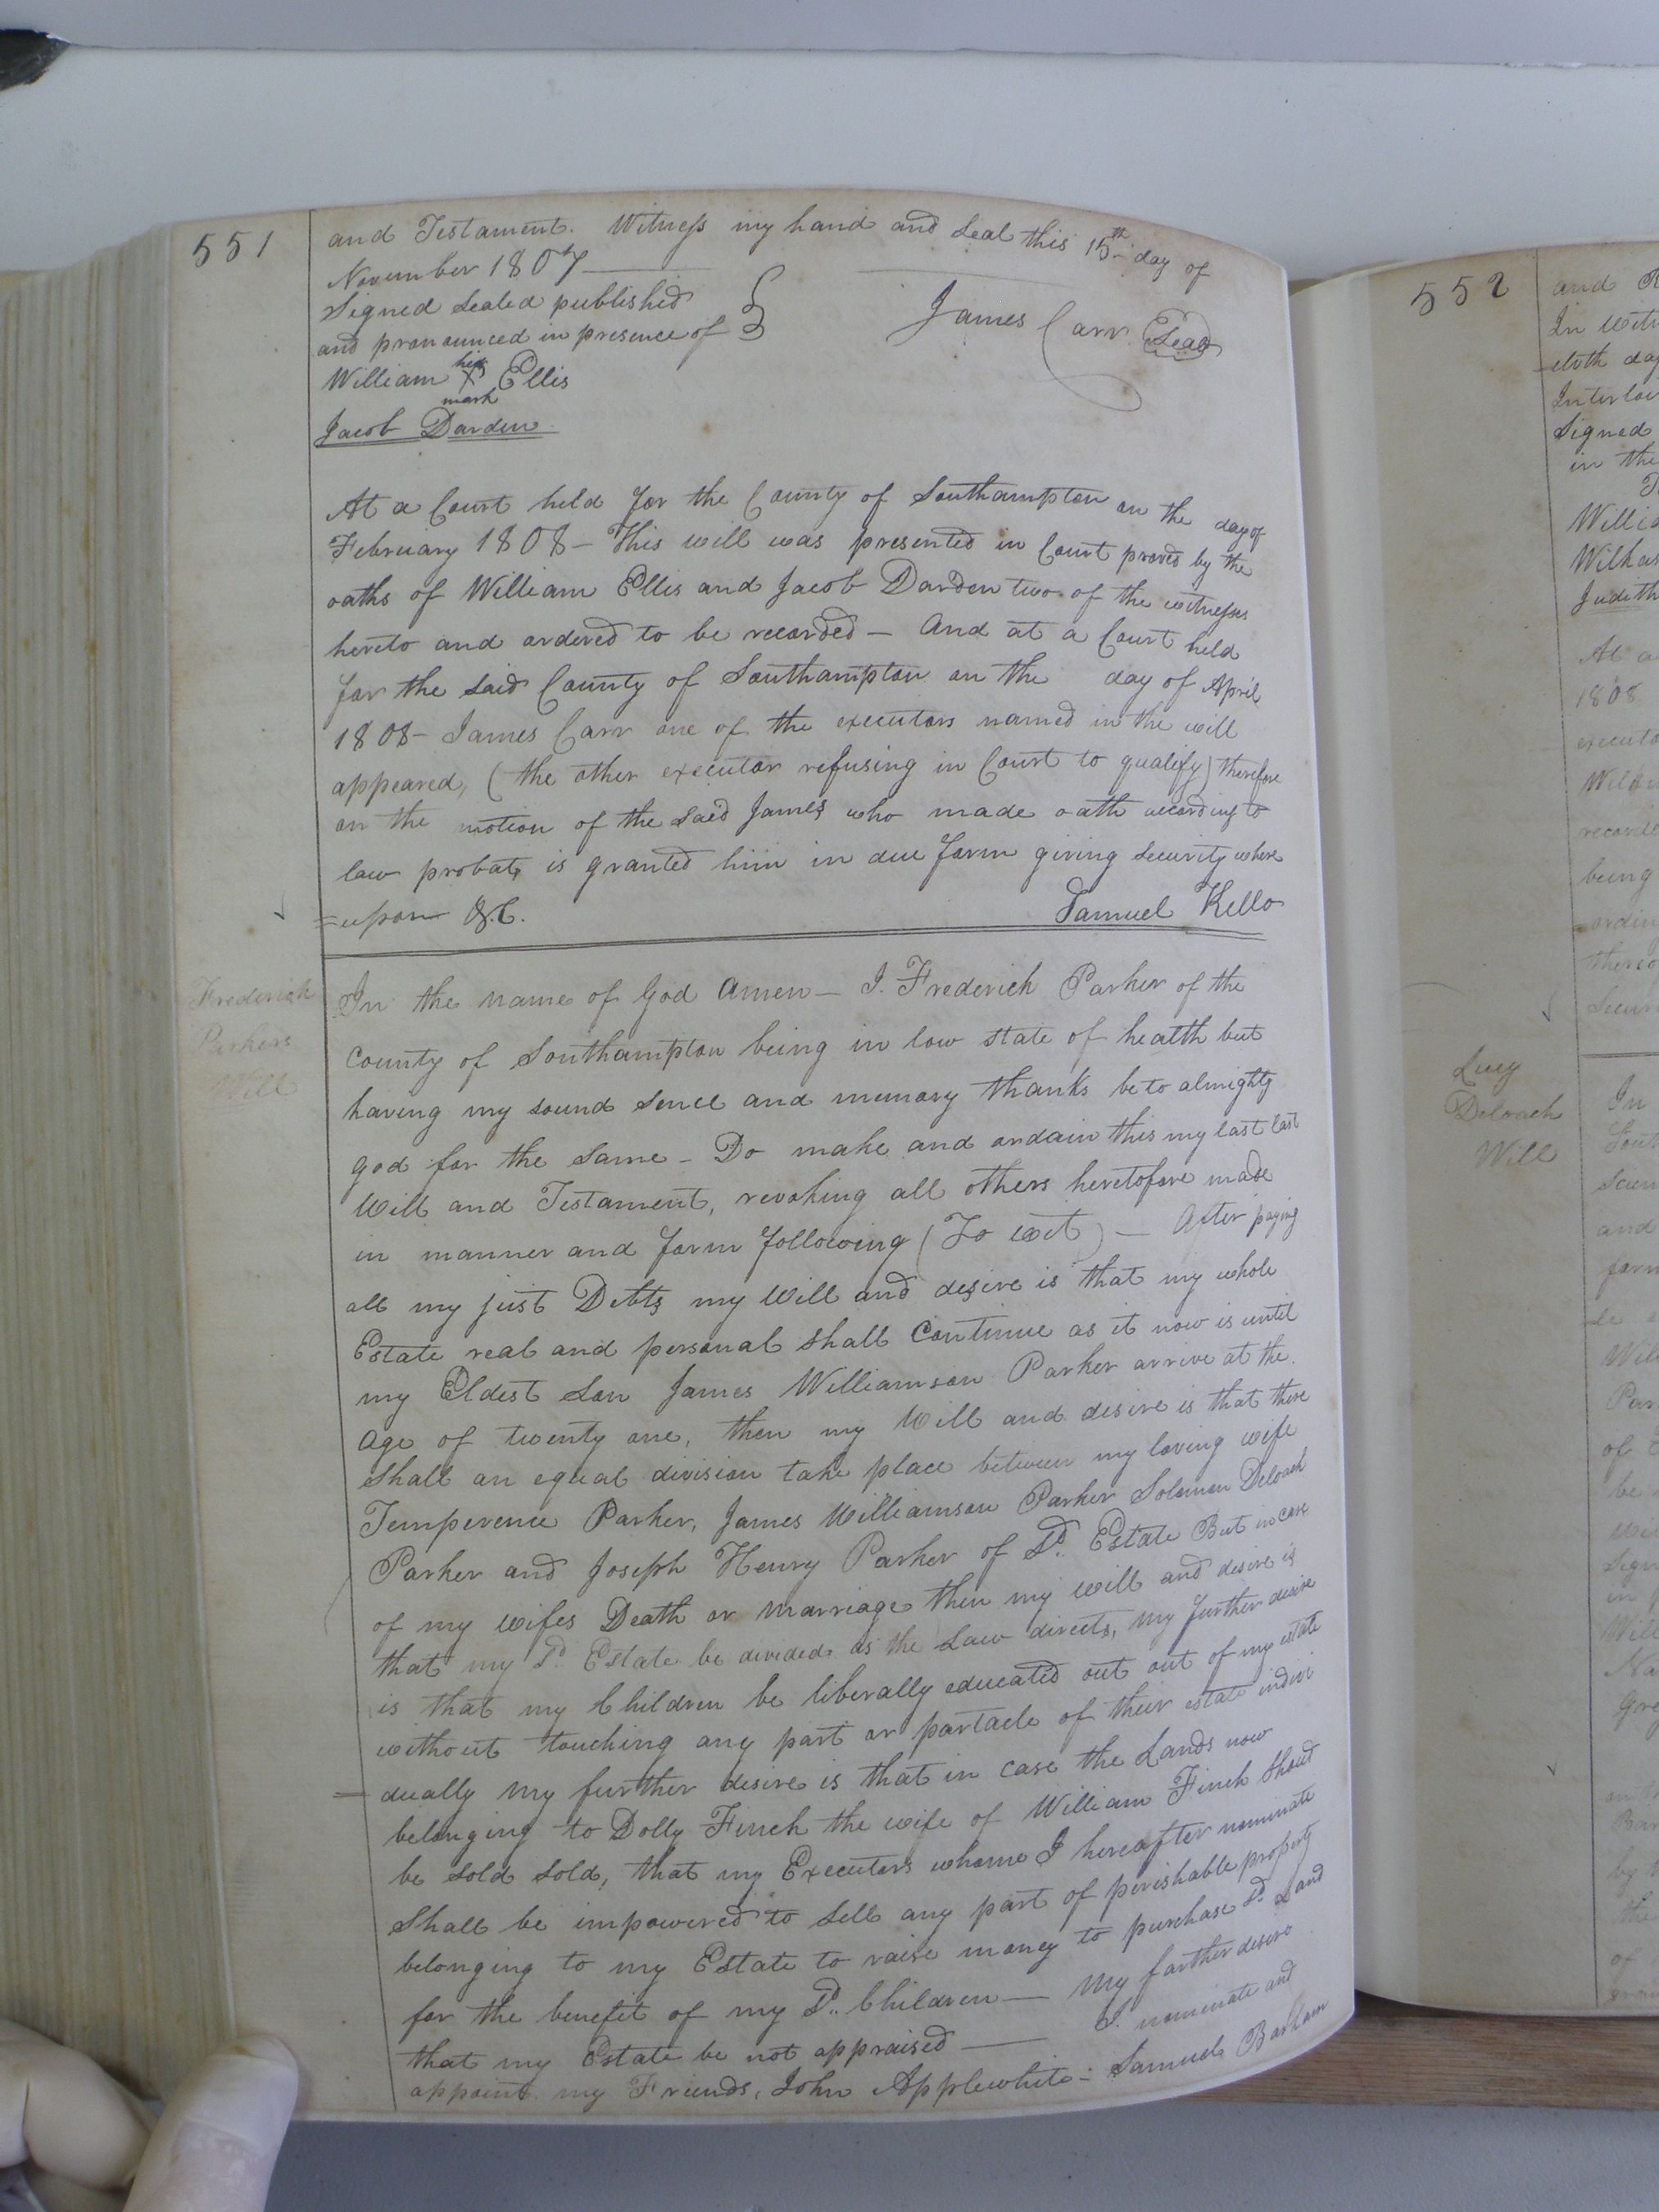 551
and Testament. Witness my hand and Seal this 15th day of
November 1807
Signed Sealed published
and pronounced in presence of
James Carr Seal
his
William X Ellis
mark
Jacob Darden
At a Court held for the County of Southampton on the day of
February 1808 - This will was presented in Court proved by the
oaths of William Ellis and Jacob Darden two of the witnesses
hereto and ordered to be recorded - And at a Court held
for the said County of Southampton on the day of April
1808 - James Carr one of the executors named in the will
appeared, (the other executor refusing in Court to qualify) therefore
on the motion of the said James who made oath according to
law probate is granted him in due form giving security where
=upon &.C.
Samuel Kello
Frederick
Parkers
Will
In the name of God Amen - I. Frederick Parker of the
County of Southampton being in low state of health but
having my sound sence and memory thanks be to almighty
god for the Same - Do make and ordain this my last last
Will and Testament, revoking all others heretofore made
in manner and form following (To wit) - After paying
all my just Debts my Will and desire is that my whole
Estate real and personal shall Continue as it now is until
my Eldest Son James Williamson Parker arrive at the
age of twenty one, then my Will and desire is that there
shall an equal division take place between my loving wife
Temperence Parker, James Williamson Parker Solomon Deloach
Parker and Joseph Henry Parker of Sd. Estate But in case
of my wifes Death or marriage then my will and desire is
that my Sd. Estate be divided as the Law directs, my further desire
is that my Children be liberally educated out out of my estate
without touching any part or partacle of their estate indivi
=dually my further desire is that in case the Lands now
belonging to Dolly Finch the wife of William Finch Shoud
be sold sold, that my Executors whome I hereafter nominate
Shall be impowered to Sell any part of perishable property
belonging to my Estate to raise money to purchase Sd. Land
for the benefit of my Sd. Children - My farther desire
that my Estate be not appraised - I. nominate and
appoint my Friends, John Applewhite - Samuel Barham
552
and
In
day
Signed
in the
Judith
1808
being
Lucy
Deloach
Will
In
and